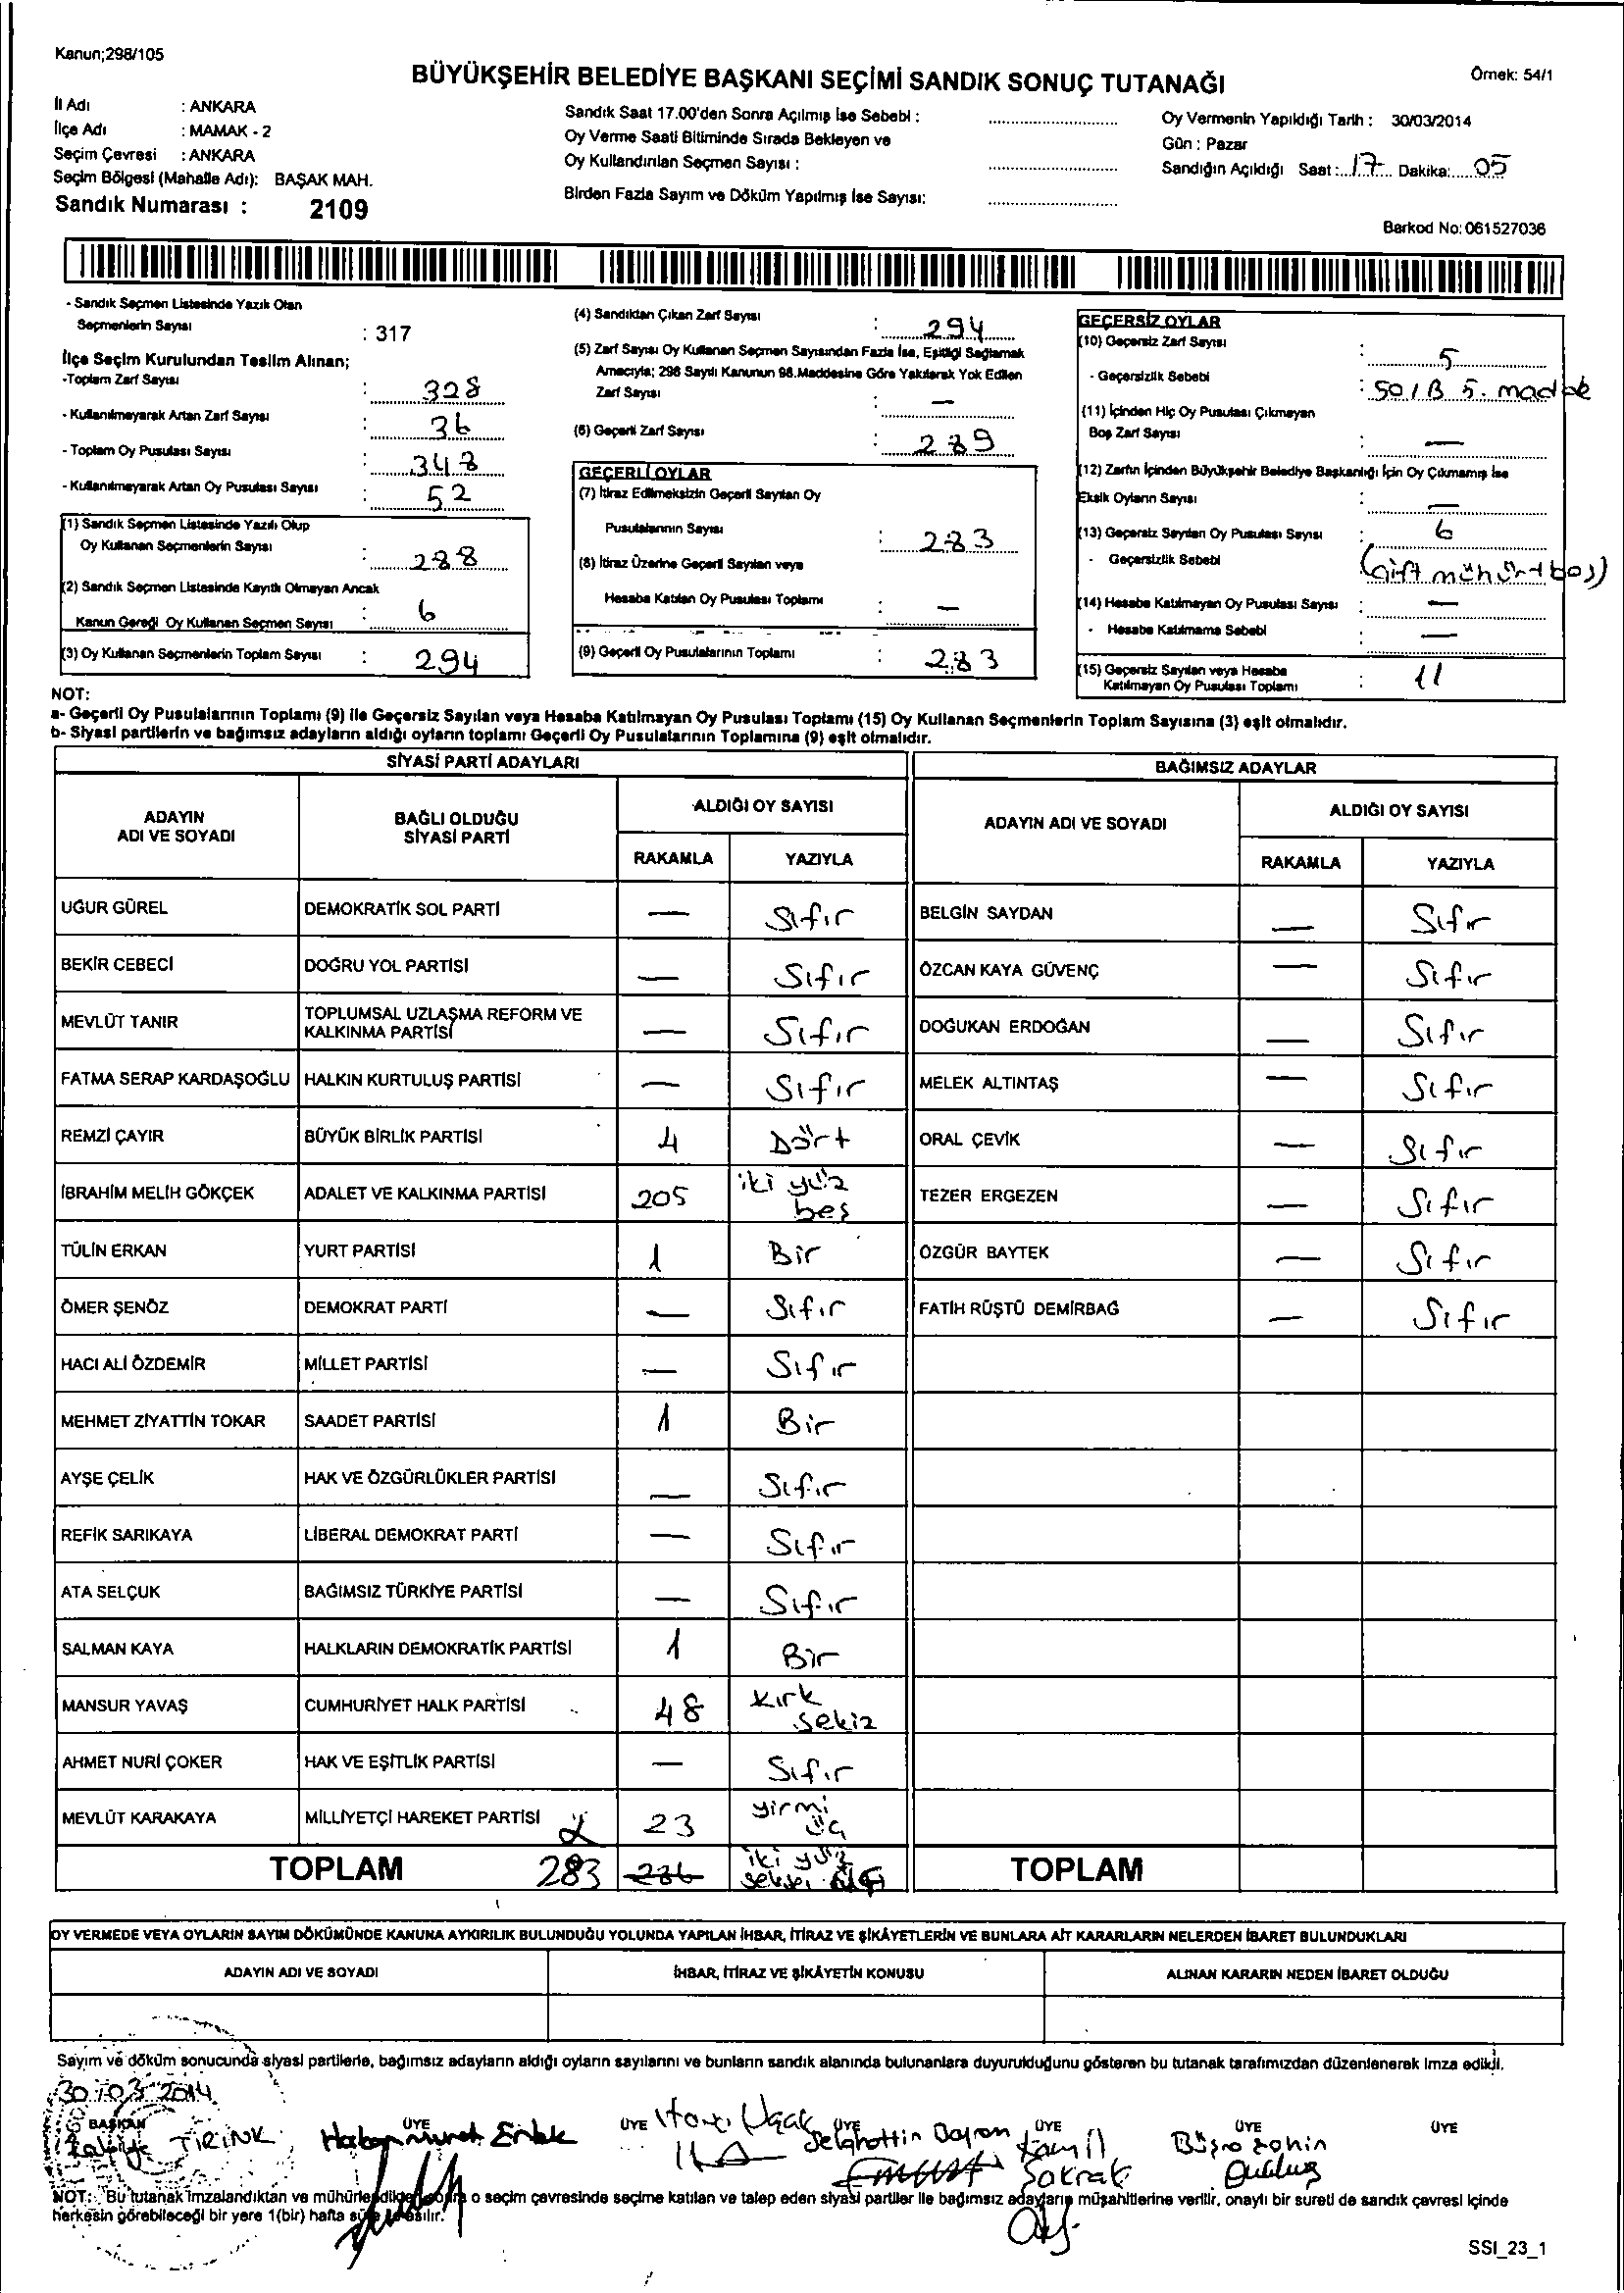 Kanun;298/105
BÜYÜKŞEHİR BELEDİYE BAŞKANI SEÇİMİ SANDIK SONUÇ TUTANAĞI
Örnek: 54/1
İl Adı : ANKARA
İlçe Adı : MAMAK - 2
Seçim Çevresi : ANKARA
Seçim Bölgesi (Mahalle Adı): BAŞAK MAH.
Sandık Numarası : 2109
Sandık Saat 17.00'den Sonra Açılmış İse Sebebi :
Oy Verme Saati Bitiminde Sırada Bekleyen ve
Oy Kullandırılan Seçmen Sayısı :
Birden Fazla Sayım ve Döküm Yapılmış İse Sayısı:
Oy Vermenin Yapıldığı Tarih : 30/03/2014
Gün : Pazar
Sandığın Açıldığı Saat : 17 Dakika: 05
Barkod No: 061527036
- Sandık Seçmen Listesinde Yazılı Olan
Seçmenlerin Sayısı : 317
İlçe Seçim Kurulundan Teslim Alınan;
-Toplam Zarf Sayısı : 328
- Kullanılmayarak Artan Zarf Sayısı : 36
- Toplam Oy Pusulası Sayısı : 348
- Kullanılmayarak Artan Oy Pusulası Sayısı : 52
(1) Sandık Seçmen Listesinde Yazılı Olup
Oy Kullanan Seçmenlerin Sayısı : 288
(2) Sandık Seçmen Listesinde Kayıtlı Olmayan Ancak
Kanun Gereği Oy Kullanan Seçmen Sayısı : 6
(3) Oy Kullanan Seçmenlerin Toplam Sayısı : 294
(4) Sandıktan Çıkan Zarf Sayısı : 294
(5) Zarf Sayısı Oy Kullanan Seçmen Sayısından Fazla İse, Eşitliği Sağlamak
Amacıyla; 298 Sayılı Kanunun 98.Maddesine Göre Yakılarak Yok Edilen
Zarf Sayısı : —
(6) Geçerli Zarf Sayısı : 289
GEÇERLİ OYLAR
(7) İtiraz Edilmeksizin Geçerli Sayılan Oy
Pusulalarının Sayısı : 283
(8) İtiraz Üzerine Geçerli Sayılan veya
Hesaba Katılan Oy Pusulası Toplamı : —
(9) Geçerli Oy Pusulalarının Toplamı : 283
GEÇERSİZ OYLAR
(10) Geçersiz Zarf Sayısı : 5
- Geçersizlik Sebebi : 50/B 5. madde
(11) İçinden Hiç Oy Pusulası Çıkmayan
Boş Zarf Sayısı : —
(12) Zarfın İçinden Büyükşehir Belediye Başkanlığı İçin Oy Çıkmamış İse
Eksik Oyların Sayısı : —
(13) Geçersiz Sayılan Oy Pusulası Sayısı : 6
- Geçersizlik Sebebi : (çift mühür+boş)
(14) Hesaba Katılmayan Oy Pusulası Sayısı : —
- Hesaba Katılmama Sebebi : —
(15) Geçersiz Sayılan veya Hesaba
Katılmayan Oy Pusulası Toplamı : 11
NOT:
a- Geçerli Oy Pusulalarının Toplamı (9) ile Geçersiz Sayılan veya Hesaba Katılmayan Oy Pusulası Toplamı (15) Oy Kullanan Seçmenlerin Toplam Sayısına (3) eşit olmalıdır.
b- Siyasi partilerin ve bağımsız adayların aldığı oyların toplamı Geçerli Oy Pusulalarının Toplamına (9) eşit olmalıdır.
SİYASİ PARTİ ADAYLARI
BAĞIMSIZ ADAYLAR
ADAYIN ADI VE SOYADI
BAĞLI OLDUĞU SİYASİ PARTİ
ALDIĞI OY SAYISI
RAKAMLA YAZIYLA
ADAYIN ADI VE SOYADI
ALDIĞI OY SAYISI
RAKAMLA YAZIYLA
UĞUR GÜREL DEMOKRATİK SOL PARTİ — Sıfır BELGİN SAYDAN — Sıfır
BEKİR CEBECİ DOĞRU YOL PARTİSİ — Sıfır ÖZCAN KAYA GÜVENÇ — Sıfır
MEVLÜT TANIR TOPLUMSAL UZLAŞMA REFORM VE KALKINMA PARTİSİ — Sıfır DOĞUKAN ERDOĞAN — Sıfır
FATMA SERAP KARDAŞOĞLU HALKIN KURTULUŞ PARTİSİ — Sıfır MELEK ALTINTAŞ — Sıfır
REMZİ ÇAYIR BÜYÜK BİRLİK PARTİSİ 4 Dört ORAL ÇEVİK — Sıfır
İBRAHİM MELİH GÖKÇEK ADALET VE KALKINMA PARTİSİ 205 iki yüz beş TEZER ERGEZEN — Sıfır
TÜLİN ERKAN YURT PARTİSİ 1 Bir ÖZGÜR BAYTEK — Sıfır
ÖMER ŞENÖZ DEMOKRAT PARTİ — Sıfır FATİH RÜŞTÜ DEMİRBAĞ — Sıfır
HACI ALİ ÖZDEMİR MİLLET PARTİSİ — Sıfır
MEHMET ZİYATTİN TOKAR SAADET PARTİSİ 1 Bir
AYŞE ÇELİK HAK VE ÖZGÜRLÜKLER PARTİSİ — Sıfır
REFİK SARIKAYA LİBERAL DEMOKRAT PARTİ — Sıfır
ATA SELÇUK BAĞIMSIZ TÜRKİYE PARTİSİ — Sıfır
SALMAN KAYA HALKLARIN DEMOKRATİK PARTİSİ 1 Bir
MANSUR YAVAŞ CUMHURİYET HALK PARTİSİ 48 kırk sekiz
AHMET NURİ ÇOKER HAK VE EŞİTLİK PARTİSİ — Sıfır
MEVLÜT KARAKAYA MİLLİYETÇİ HAREKET PARTİSİ 23 yirmi üç
TOPLAM 283 286 iki yüz seksen TOPLAM
OY VERMEDE VEYA OYLARIN SAYIM DÖKÜMÜNDE KANUNA AYKIRILIK BULUNDUĞU YOLUNDA YAPILAN İHBAR, İTİRAZ VE ŞİKÂYETLERİN VE BUNLARA AİT KARARLARIN NELERDEN İBARET BULUNDUKLARI
ADAYIN ADI VE SOYADI İHBAR, İTİRAZ VE ŞİKÂYETİN KONUSU ALINAN KARARIN NEDEN İBARET OLDUĞU
Sayım ve döküm sonucunda siyasi partilerle, bağımsız adayların aldığı oyların sayılarını ve bunların sandık alanında bulunanlara duyurulduğunu gösteren bu tutanak tarafımızdan düzenlenerek imza edildi.
30/03/2014
BAŞKAN ÜYE ÜYE ÜYE ÜYE ÜYE ÜYE
TİRİNK Selahattin Kamil Büşra Şahin
NOT: Bu tutanak imzalandıktan ve mühürlendikten sonra o seçim çevresinde seçime katılan ve talep eden siyasi partiler ile bağımsız adayların müşahitlerine verilir, onaylı bir sureti de sandık çevresi içinde
herkesin görebileceği bir yere 1(bir) hafta süre ile asılır.
SSI_23_1